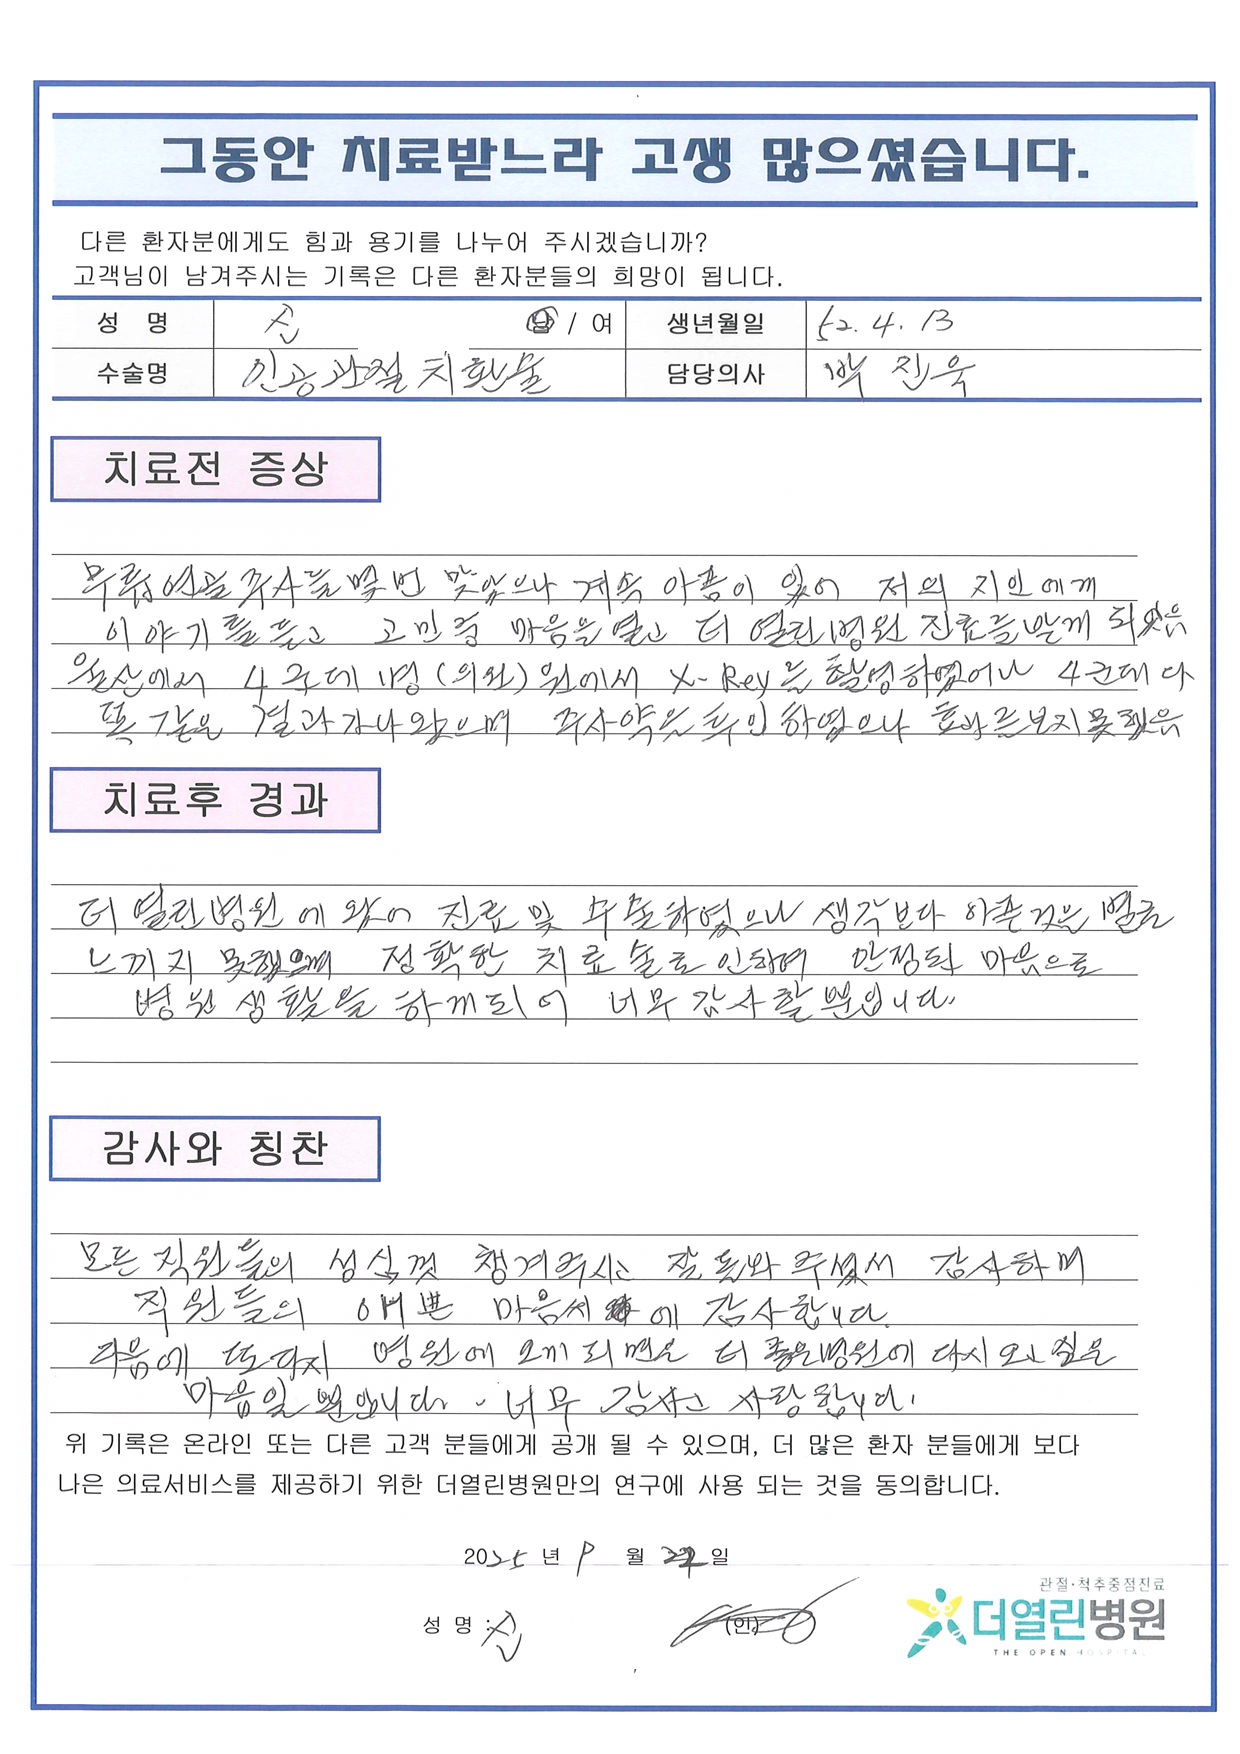 그동안 치료받느라 고생 많으셨습니다.
다른 환자분에게도 힘과 용기를 나누어 주시겠습니까?
고객님이 남겨주시는 기록은 다른 환자분들의 희망이 됩니다.
성 명 신 남 / 여 생년월일 52. 4. 13
수술명 인공관절치환물 담당의사 박진욱
치료전 증상
무릎연골주사를 몇번 맞았으나 계속 아픔이 있어 저의 지인에게
이야기를 듣고 고민중 마음을 열고 더 열린병원 진료를 받게 되었음
울산에서 4군데 병(의원)원에서 X-Rey를 촬영하였어나 4군데 다
똑같은 결과가 나왔으며 주사약을 투입하였으나 효과를 보지못했음
치료후 경과
더 열린병원에 왔어 진료 및 수술하였으나 생각보다 아픈것은 별로
느끼지 못했으며 정확한 치료술로 인하여 안정된 마음으로
병원 생활을 하게되어 너무 감사할 뿐입니다.
감사와 칭찬
모든 직원들의 성심껏 챙겨주시고 잘 돌와 주셨서 감사하며
직원들의 예쁜 마음씨에 감사합니다.
다음에 또다시 병원에 오게 되면은 더 좋은병원에 다시 오고 싶은
마음일 뿐입니다. 너무 감사고 사랑합니다.
위 기록은 온라인 또는 다른 고객 분들에게 공개 될 수 있으며, 더 많은 환자 분들에게 보다
나은 의료서비스를 제공하기 위한 더열린병원만의 연구에 사용 되는 것을 동의합니다.
2025 년 9 월 일
성 명 : 신 (인)
관절·척추중점진료
더열린병원
THE OPEN HOSPITAL